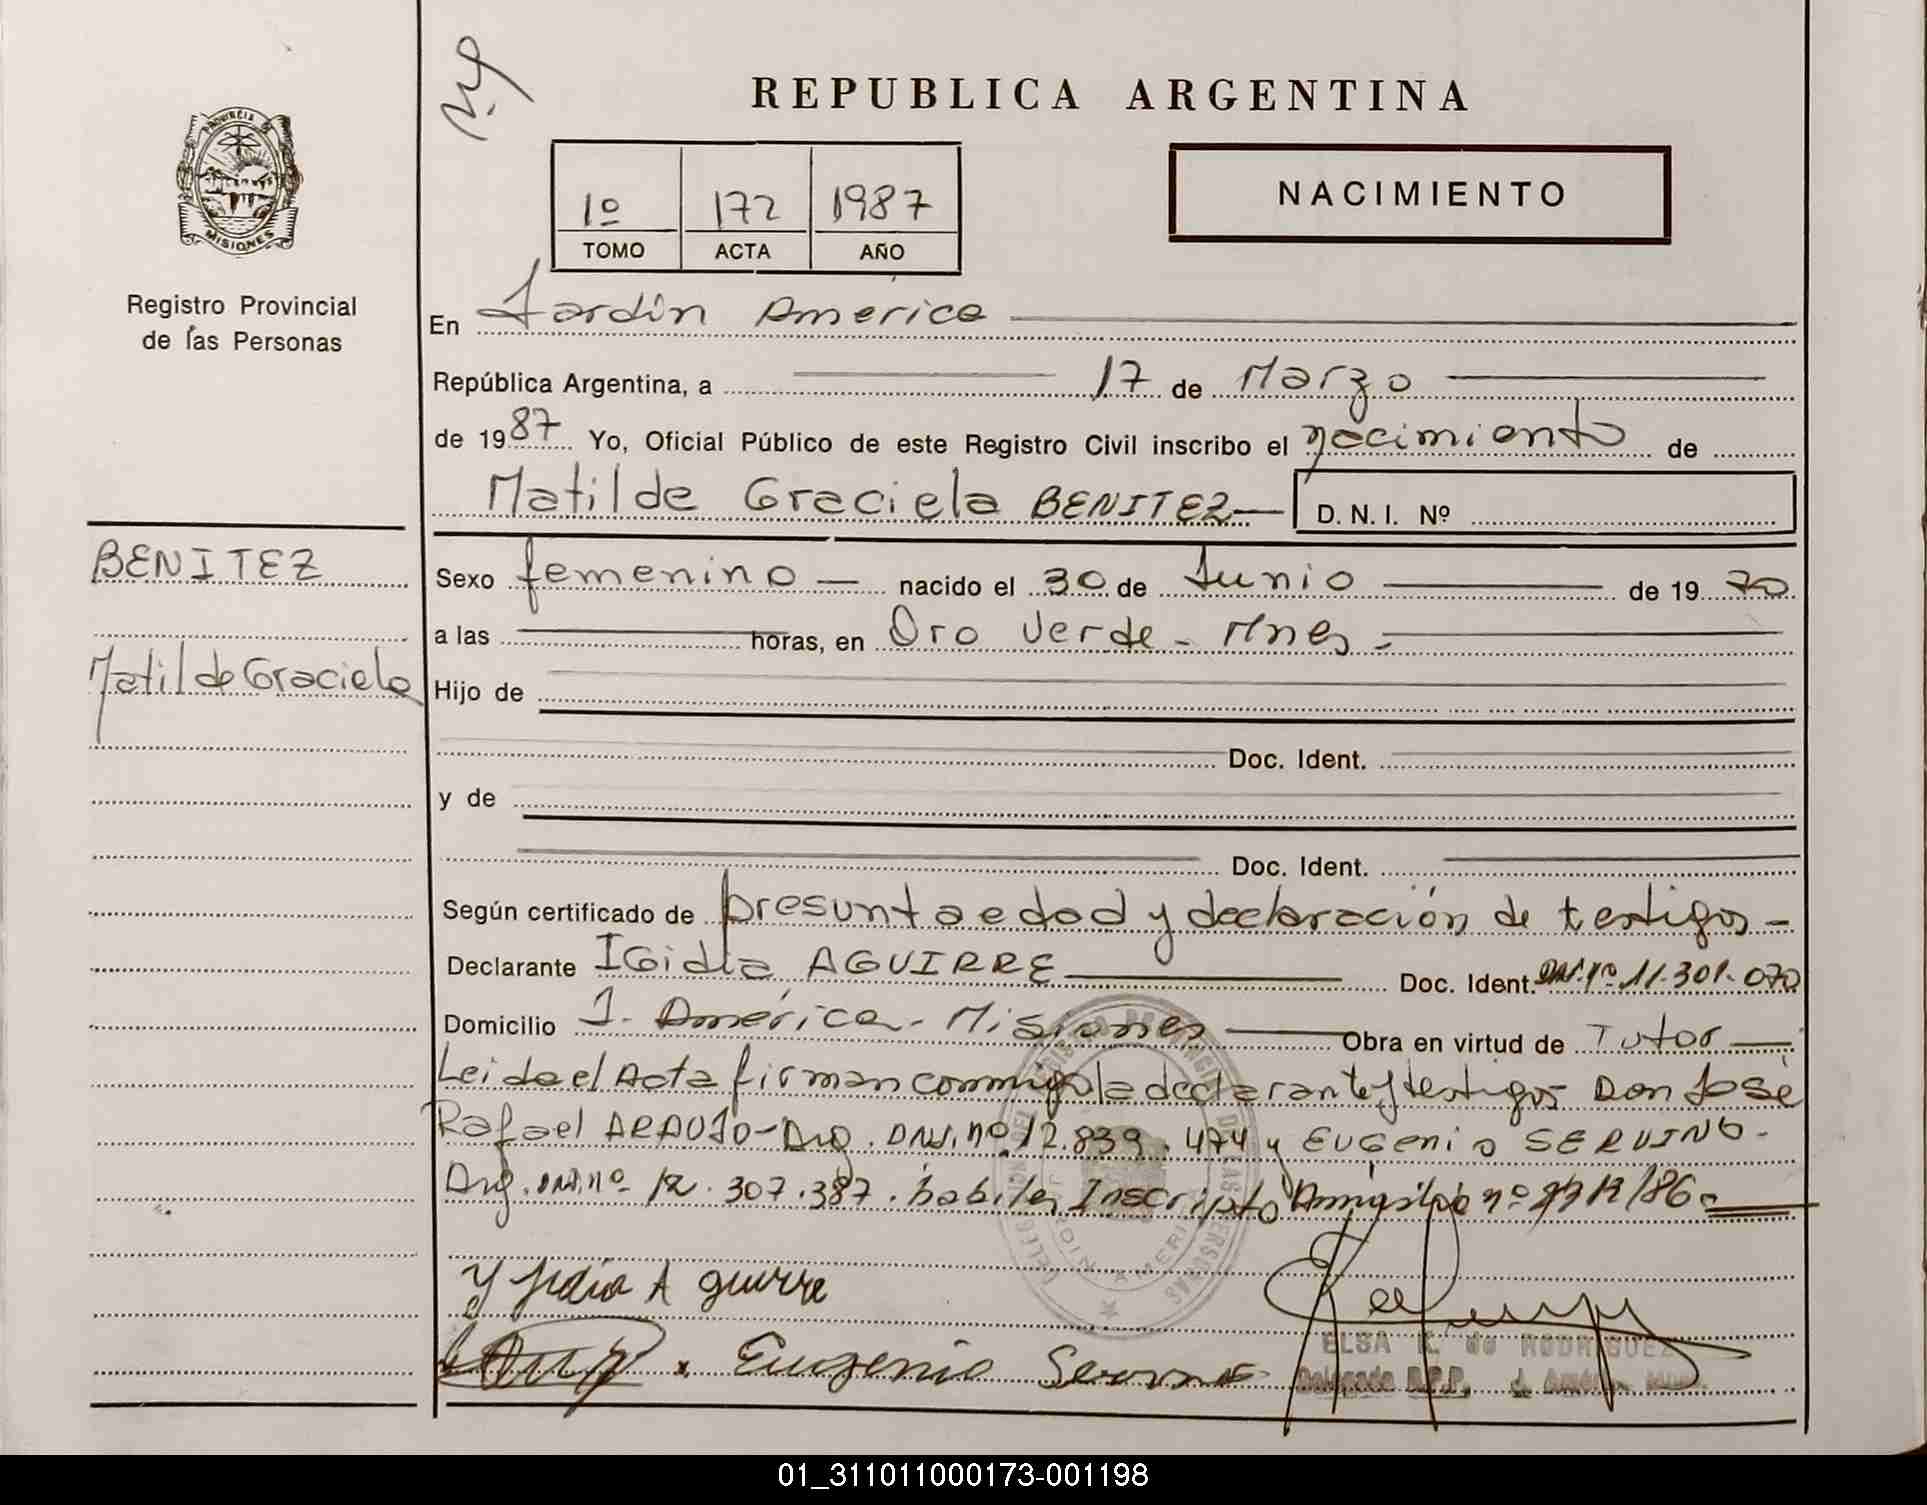 REPUBLICA ARGENTINA
PROVINCIA DE
MISIONES
Registro Provincial
de las Personas
1º 172 1987
TOMO ACTA AÑO
NACIMIENTO
En Jardín America
República Argentina, a 17 de Marzo
de 1987 Yo, Oficial Público de este Registro Civil inscribo el nacimiento de
Matilde Graciela BENITEZ D. N. I. Nº
BENITEZ
Matilde Graciela
Sexo femenino nacido el 30 de Junio de 1970
a las horas, en Oro Verde - Mnes -
Hijo de
Doc. Ident.
y de
Doc. Ident.
Según certificado de presunta edad y declaración de testigos -
Declarante IGidia AGUIRRE Doc. Ident. DNI. nº 11.301.070
Domicilio J. América - Misiones Obra en virtud de Tutor
Leida el Acta firman conmigo la declarante y testigos Don José
Rafael ARAUJO - Arg. DNI. nº 12.839.474 y EUGENIO SERVINO -
Arg. DNI. nº 12.307.387. habiles Inscripto Amnistía nº /86
Y jidia Aguirre
Eugenio
ELSA K. de RODRIGUEZ
Delegada R.P.P. J. América
01_311011000173-001198